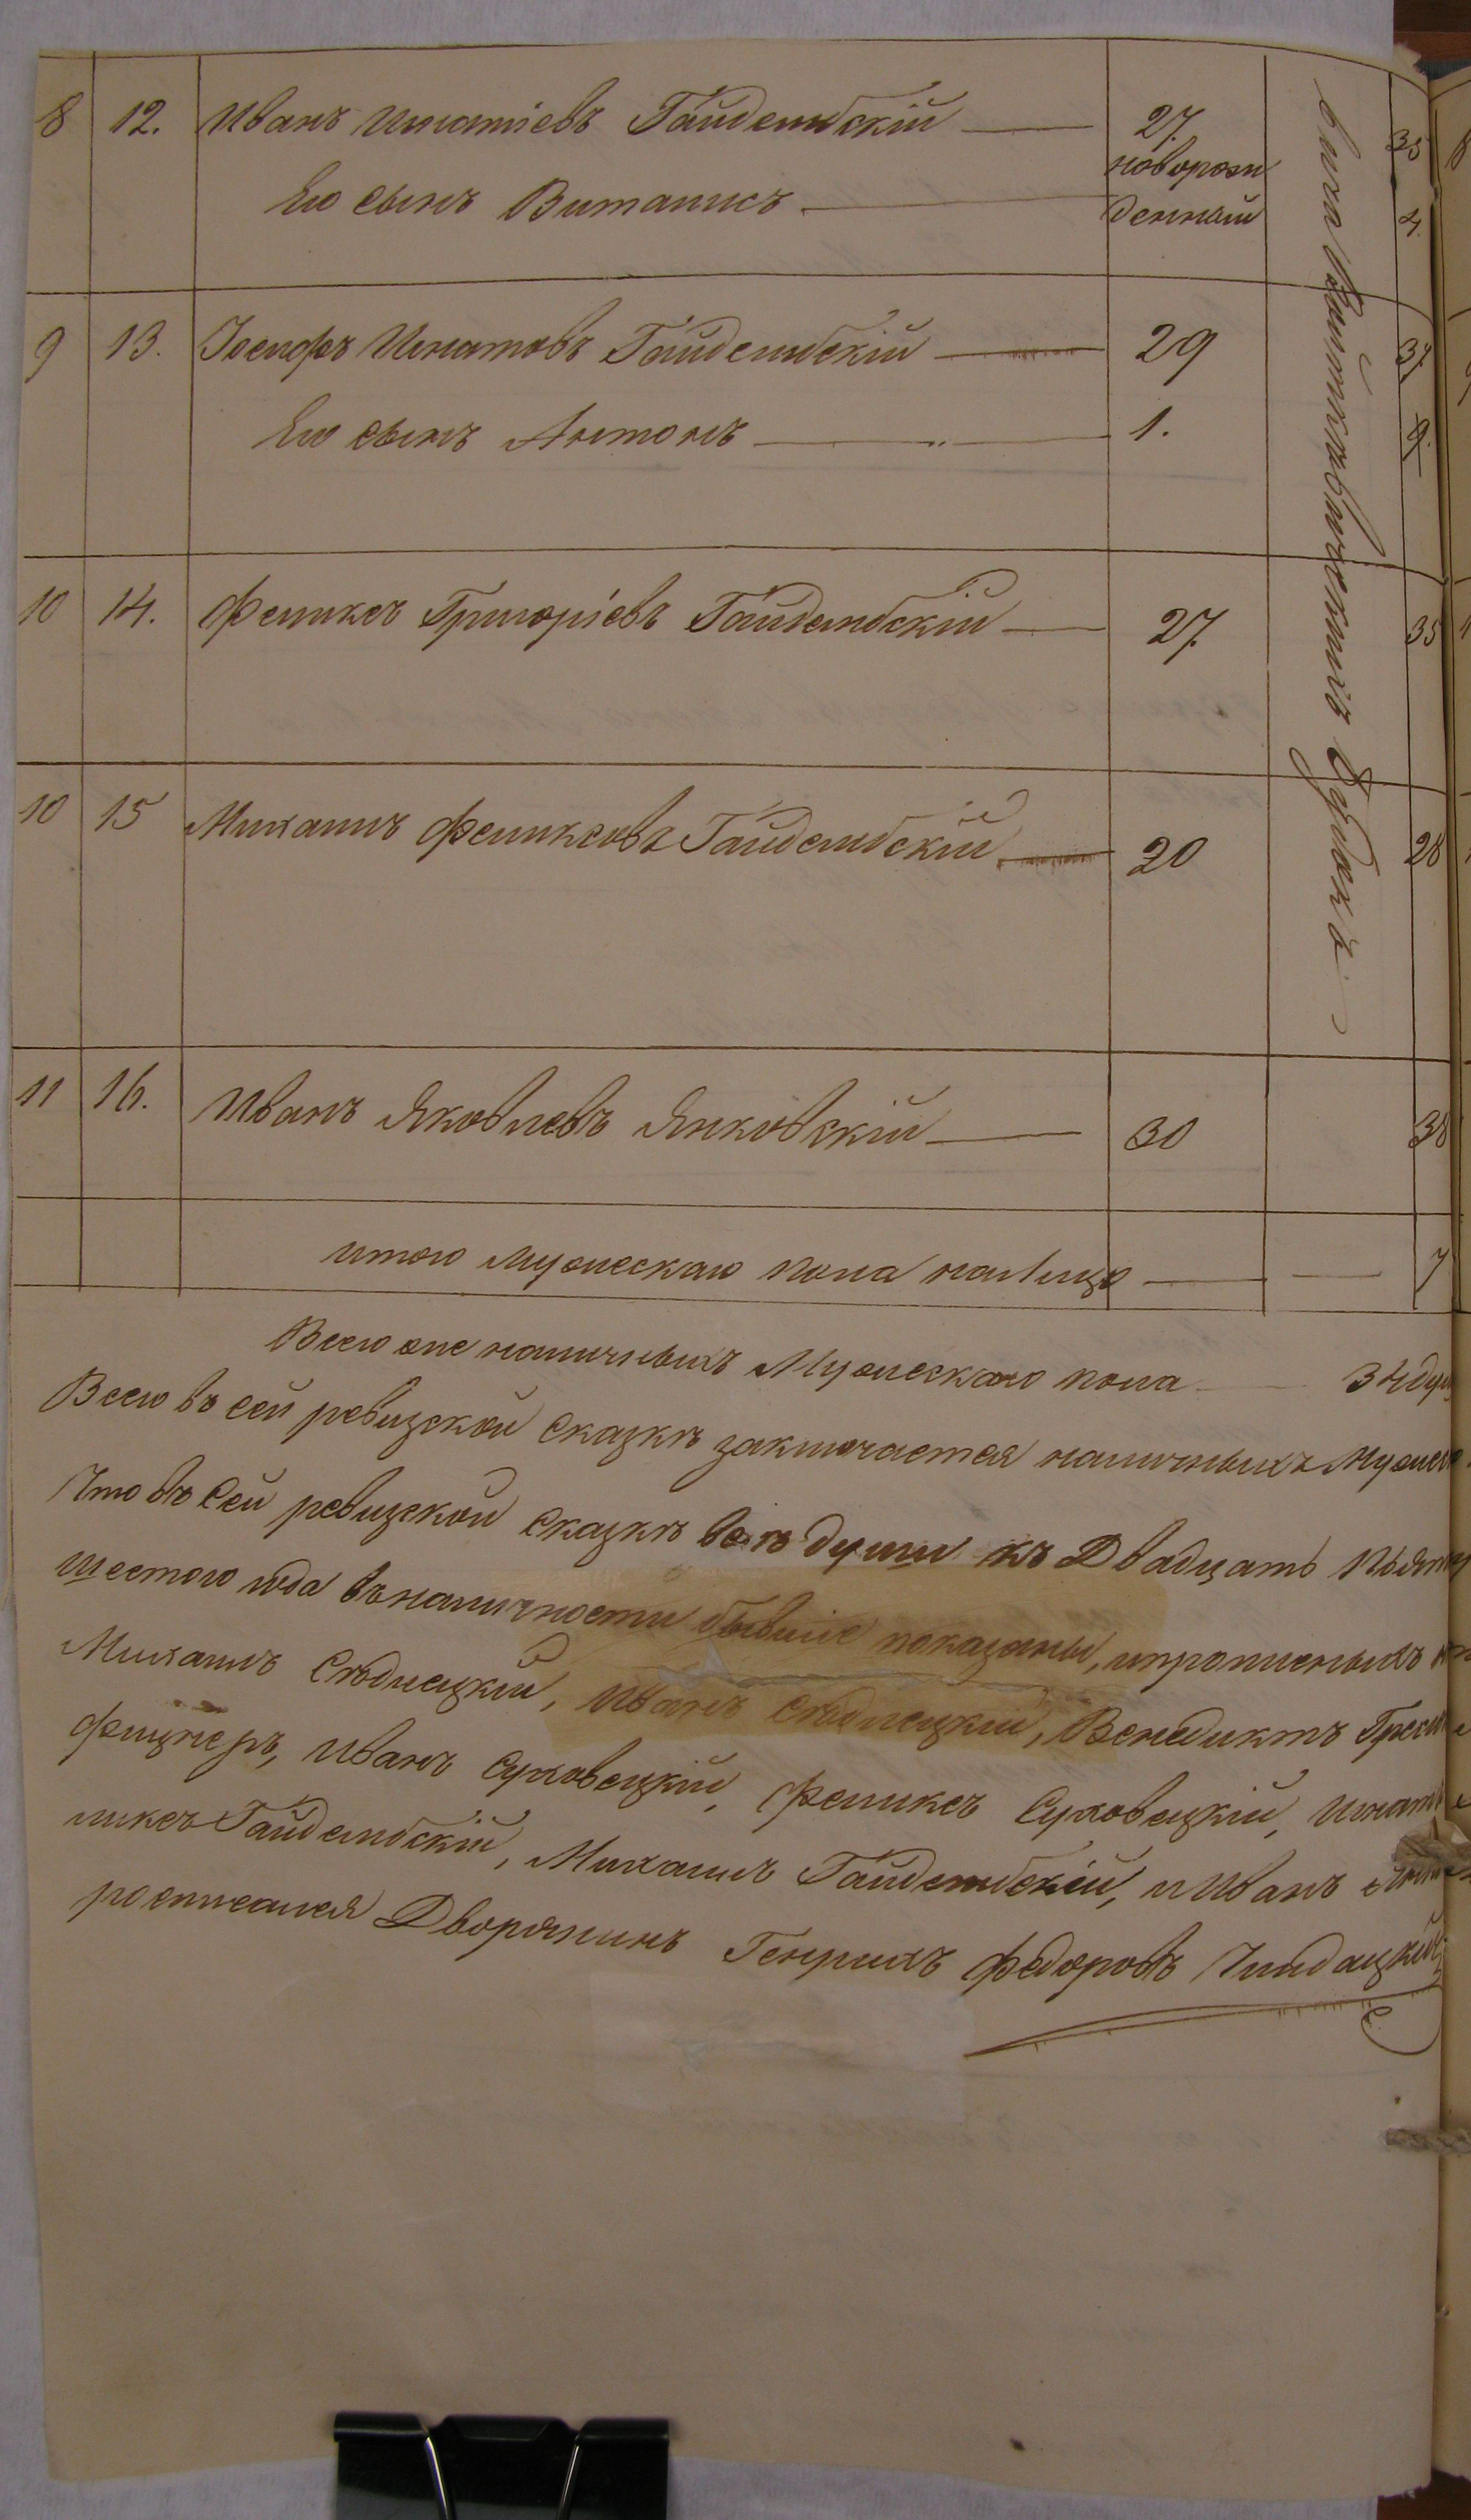 8 12. Иванъ Игнатіевъ Гайдембскій 27. 35
новорож
Его сынъ Виталисъ денный 4.
9 13. Іосифъ Игнатовъ Гайдембскій 29 37
Его сынъ Антонъ 1. 9.
10 14. Феликсъ Григоріевъ Гайдембскій 27. 35
10 15 Михаилъ Феликсовъ Гайдембскій 20 28
11 16. Иванъ Яковлевъ Янковскій 30 38
итого мужескаго пола налицо 7
Всего же наличныхъ Мужескаго пола 34 душ
Всего въ сей ревизской сказкѣ заключается наличныхъ Мужеск
Что въ сей ревизской сказкѣ всѣ души къ Двадцать пьято
шестого года въ наличности бывшіе показаны, и прописныхъ
Михаилъ Сѣдлецкій, Иванъ Сѣдлецкій, Венедиктъ
Фицнеръ, Иванъ Суховецкій, Феликсъ Суховецкій, Игнат
ликсъ Гайдембскій, Михаилъ Гайдембскій, и Иванъ Янк
росписался Дворянинъ Генрихъ Федоровъ